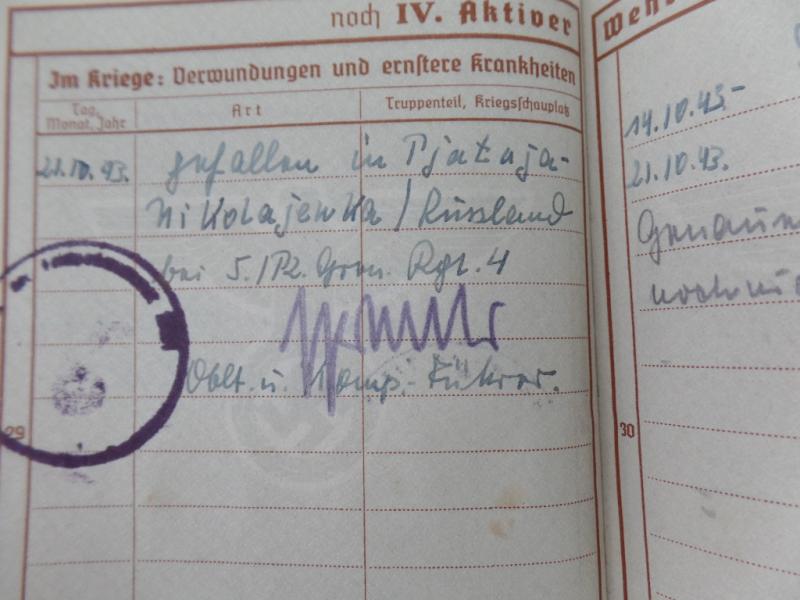 noch IV. Aktiver
Im Kriege: Verwundungen und ernstere Krankheiten
Tag, Monat, Jahr
Art
Truppenteil, Kriegsschauplatz
21.10.43. gefallen in Pjataja-
Nikolajewka / Russland
bei 5./Pz. Gren. Rgt. 4
Oblt. u. Komp.-Führer.
29
Weh
14.10.43.-
21.10.43.
Genaue
30